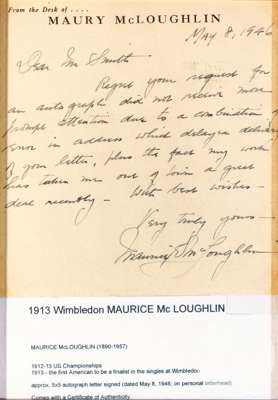 From the Desk of . . . .
MAURY McLOUGHLIN
May 8, 1946
Dear Mr Smith
Regret your request for
an autograph did not receive more
prompt attention due to a combination
error in address which delayed delivery
of your letter, plus the fact my work
has taken me out of town a great
deal recently — With best wishes —
Very truly yours —
Maurice McLoughlin
1913 Wimbledon MAURICE Mc LOUGHLIN
MAURICE McLOUGHLIN (1890-1957)
1912-13 US Championships
1913 - the first American to be a finalist in the singles at Wimbledon
approx. 5x5 autograph letter signed (dated May 8, 1946; on personal letterhead)
Comes with a Certificate of Authenticity.